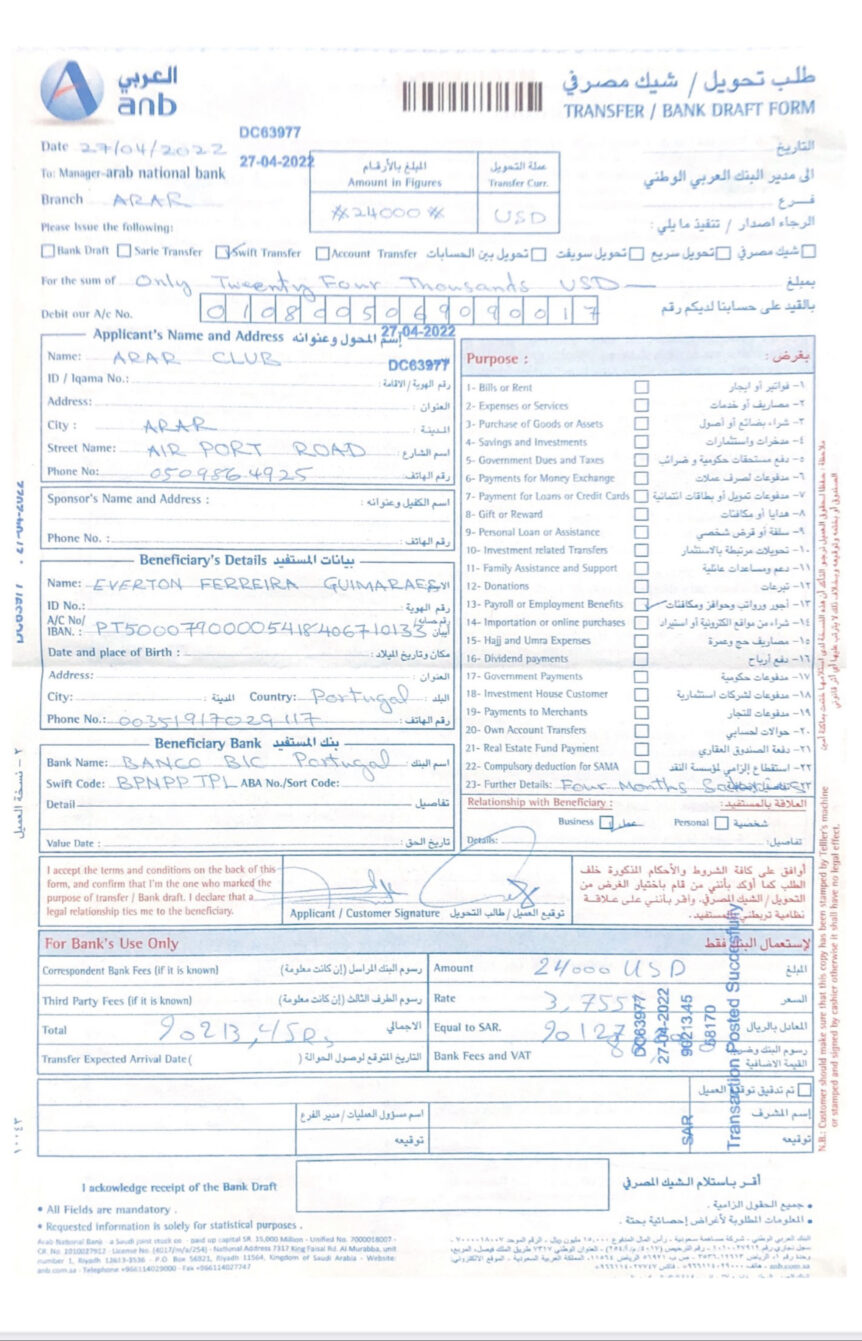 العربي
anb
طلب تحويل / شيك مصرفي
TRANSFER / BANK DRAFT FORM
DC63977
27-04-2022
Date 27/04/2022 التاريخ
To: Manager-arab national bank الى مدير البنك العربي الوطني
Branch ARAR فرع
Please Issue the following: الرجاء اصدار / تنفيذ ما يلي :
المبلغ بالأرقام
Amount in Figures
24000
عملة التحويل
Transfer Curr.
USD
Bank Draft Sarie Transfer Swift Transfer Account Transfer تحويل بين الحسابات تحويل سويفت تحويل سريع شيك مصرفي
For the sum of Only Tweenty Four Thousands USD بمبلغ
Debit our A/c No. 0108005069090017 بالقيد على حسابنا لديكم رقم
Applicant's Name and Address إسم المحول وعنوانه 27-04-2022
DC63977
Name: ARAR CLUB
ID / Iqama No.: رقم الهوية / الاقامة :
Address: العنوان :
City : ARAR المدينة :
Street Name: AIR PORT ROAD اسم الشارع :
Phone No: 0509864925 رقم الهاتف:
Sponsor's Name and Address : اسم الكفيل وعنوانه :
Phone No. : رقم الهاتف:
Beneficiary's Details بيانات المستفيد
Name: EVERTON FERREIRA GUIMARAES
ID No.: رقم الهوية:
A/C No/
IBAN. : PT50007900005418406710133
Date and place of Birth : مكان وتاريخ الميلاد :
Address: العنوان :
City: المدينة : Country: Portugal البلد :
Phone No.: 00351917029117 رقم الهاتف:
Beneficiary Bank بنك المستفيد
Bank Name: BANCO BIC Portugal اسم البنك :
Swift Code: BPNPPTPL ABA No./Sort Code:
Detail تفاصيل
Value Date : تاريخ الحق :
Purpose : بغرض :
1- Bills or Rent ١- فواتير أو ايجار
2- Expenses or Services ٢- مصاريف أو خدمات
3- Purchase of Goods or Assets ٣- شراء بضائع أو أصول
4- Savings and Investments ٤- مدخرات واستثمارات
5- Government Dues and Taxes ٥- دفع مستحقات حكومية و ضرائب
6- Payments for Money Exchange ٦- مدفوعات لصرف عملات
7- Payment for Loans or Credit Cards ٧- مدفوعات تمويل أو بطاقات ائتمانية
8- Gift or Reward ٨- هدايا أو مكافئات
9- Personal Loan or Assistance ٩- سلفة أو قرض شخصي
10- Investment related Transfers ١٠- تحويلات مرتبطة بالاستثمار
11- Family Assistance and Support ١١- دعم ومساعدات عائلية
12- Donations ١٢- تبرعات
13- Payroll or Employment Benefits ١٣- أجور ورواتب وحوافز ومكافئات
14- Importation or online purchases ١٤- شراء من مواقع الكترونية أو استيراد
15- Hajj and Umra Expenses ١٥- مصاريف حج وعمرة
16- Dividend payments ١٦- دفع أرباح
17- Government Payments ١٧- مدفوعات حكومية
18- Investment House Customer ١٨- مدفوعات لشركات استثمارية
19- Payments to Merchants ١٩- مدفوعات للتجار
20- Own Account Transfers ٢٠- حوالات لحسابي
21- Real Estate Fund Payment ٢١- دفعة الصندوق العقاري
22- Compulsory deduction for SAMA ٢٢- إستقطاع إلزامي لمؤسسة النقد
23- Further Details: Four Months
Relationship with Beneficiary : العلاقة بالمستفيد:
Business عمل Personal شخصية
Details: تفاصيل:
I accept the terms and conditions on the back of this
form, and confirm that I'm the one who marked the
purpose of transfer / Bank draft. I declare that a
legal relationship ties me to the beneficiary.
Applicant / Customer Signature توقيع العميل / طالب التحويل
أوافق على كافة الشروط والأحكام المذكورة خلف
الطلب كما أؤكد بأنني من قام باختيار الغرض من
التحويل / الشيك المصرفي. وأقر بأنني على علاقة
نظامية تربطني بالمستفيد.
For Bank's Use Only لإستعمال البنك فقط
Correspondent Bank Fees (if it is known) رسوم البنك المراسل (إن كانت معلومة)
Amount 24000 USD المبلغ
Third Party Fees (if it is known) رسوم الطرف الثالث (إن كانت معلومة)
Rate 3,755 السعر
Total 90213,45 الاجمالي
Equal to SAR. 90127 المعادل بالريال
Transfer Expected Arrival Date ( التاريخ المتوقع لوصول الحوالة )
Bank Fees and VAT رسوم البنك وضريبة
القيمة الاضافية
DC63977
27-04-2022
SAR 90213.45
68170
Transaction Posted Successfully
تم تدقيق توقيع العميل
اسم مسؤول العمليات / مدير الفرع إسم المشرف
توقيعه توقيعه
I ackowledge receipt of the Bank Draft أقر باستلام الشيك المصرفي
• All Fields are mandatory . جميع الحقول الزامية .
• Requested information is solely for statistical purposes . المعلومات المطلوبة لأغراض إحصائية بحتة .
Arab National Bank a Saudi joint stock co - paid up capital SR. 15,000 Million - Unified No. 7000018007-
CR No. 1010027912 - License No. (4017/m/a/254) - National Address 7317 King Faisal Rd. Al Murabba, unit
number 1, Riyadh 12613-3536 - P.O. Box 56921, Riyadh 11564, Kingdom of Saudi Arabia - Website:
anb.com.sa - Telephone +966114029000 - Fax +966114027747
N.B.: Customer should make sure that this copy has been stamped by Telller's machine
or stamped and signed by cashier otherwise it shall have no legal effect.
٢ - نسخة العميل
١٠٠٤٣